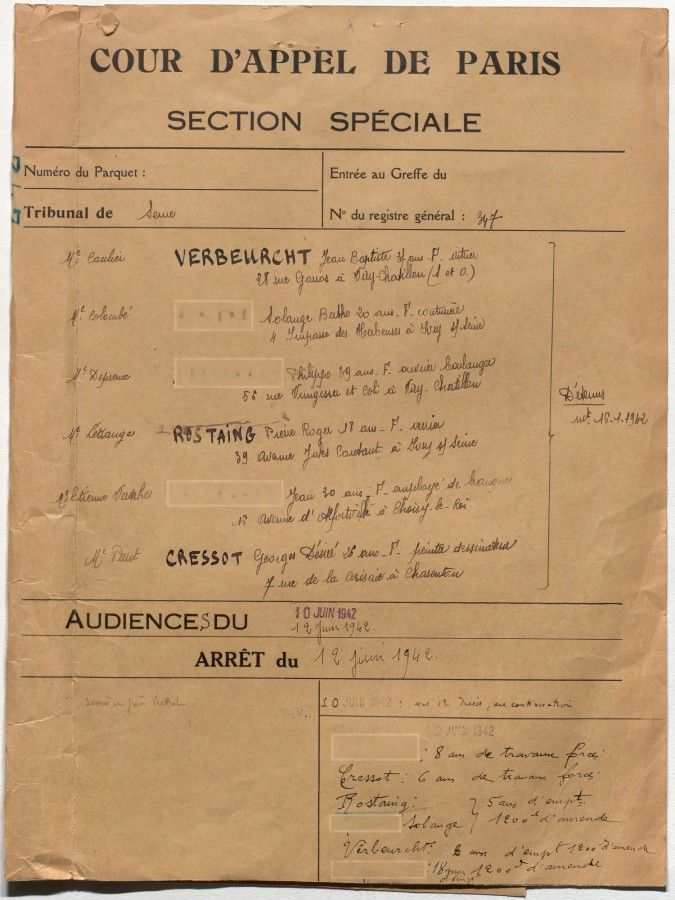 COUR D'APPEL DE PARIS
SECTION SPÉCIALE
Numéro du Parquet :
Entrée au Greffe du
Tribunal de Seine
N° du registre général : 347
Me Caulier VERBEURCHT Jean Baptiste 37 ans - F.
28 rue Garros à Viry-Chatillon (S. et O.)
Me Colombé Solange Berthe 20 ans - F. couturière
4 Impasse des Herbeuses à Ivry s/ Seine
Me Depreux Philippe 39 ans - F. ouvrier boulanger
56 rue Nungesser et Coli à Viry-Chatillon
Détenus
15-1-1942
Me Létrange ROSTAING Pierre Roger 18 ans - F. verrier
39 Avenue Jules Coutant à Ivry s/ Seine
Etienne Jean 30 ans - F. employé de banque
16 avenue d'Alfortville à Choisy-le-Roi
Me CRESSOT Georges Désiré 26 ans - F. peintre dessinateur
7 rue de la Cerisaie à Charenton
AUDIENCES DU 10 JUIN 1942
12 Juin 1942.
ARRÊT du 12 juin 1942.
10 JUIN 1942 : au 12 Juin, en continuation
12 JUIN 1942
: 8 ans de travaux forcés
Cressot : 6 ans de travaux forcés
Rostaing : } 5 ans d'empt.
Solange } 1200f d'amende
Verbeurcht : 2 ans d'empt 1200f d'amende
: 18 mois d'empt 1200f d'amende